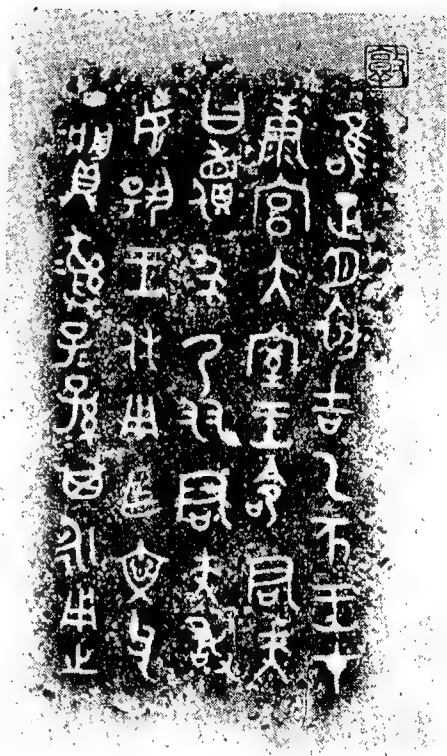 唯正月初吉乙亥王才
康宮大室王命君夫
曰儥求乃友君夫敢
揚王休用乍文父
丁彝子孫其永用之